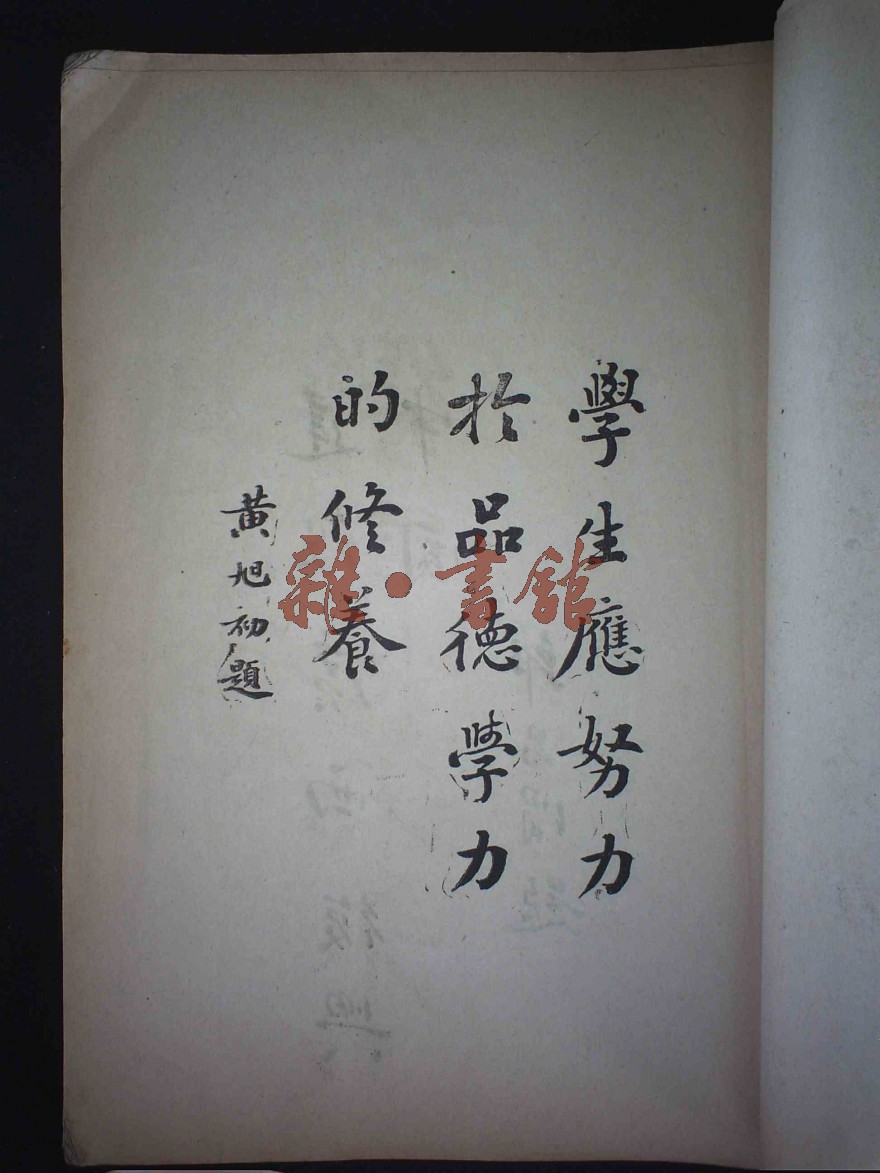 學生應努力
於品德學力
的修養
黃旭初題
雜·書館